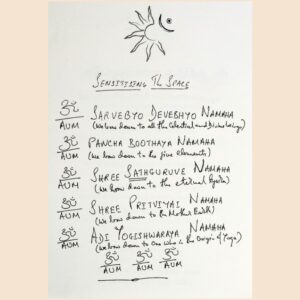 SENSITISING The SPACE
ॐ
AUM SARVEBYO DEVEBHYO NAMAHA
(We bow down to all the Celestial and Divine beings)
ॐ
AUM PANCHA BOOTHAYA NAMAHA
(We bow down to the five elements)
ॐ
AUM SHREE SATHGURUVE NAMAHA
(We bow down to the eternal Guru)
ॐ
AUM SHREE PRITVIYAI NAMAHA
(We bow down to the Mother Earth)
ॐ
AUM ADI YOGISHWARAYA NAMAHA
(We bow down to One who is the Origin of Yoga)
ॐ ॐ ॐ
AUM AUM AUM